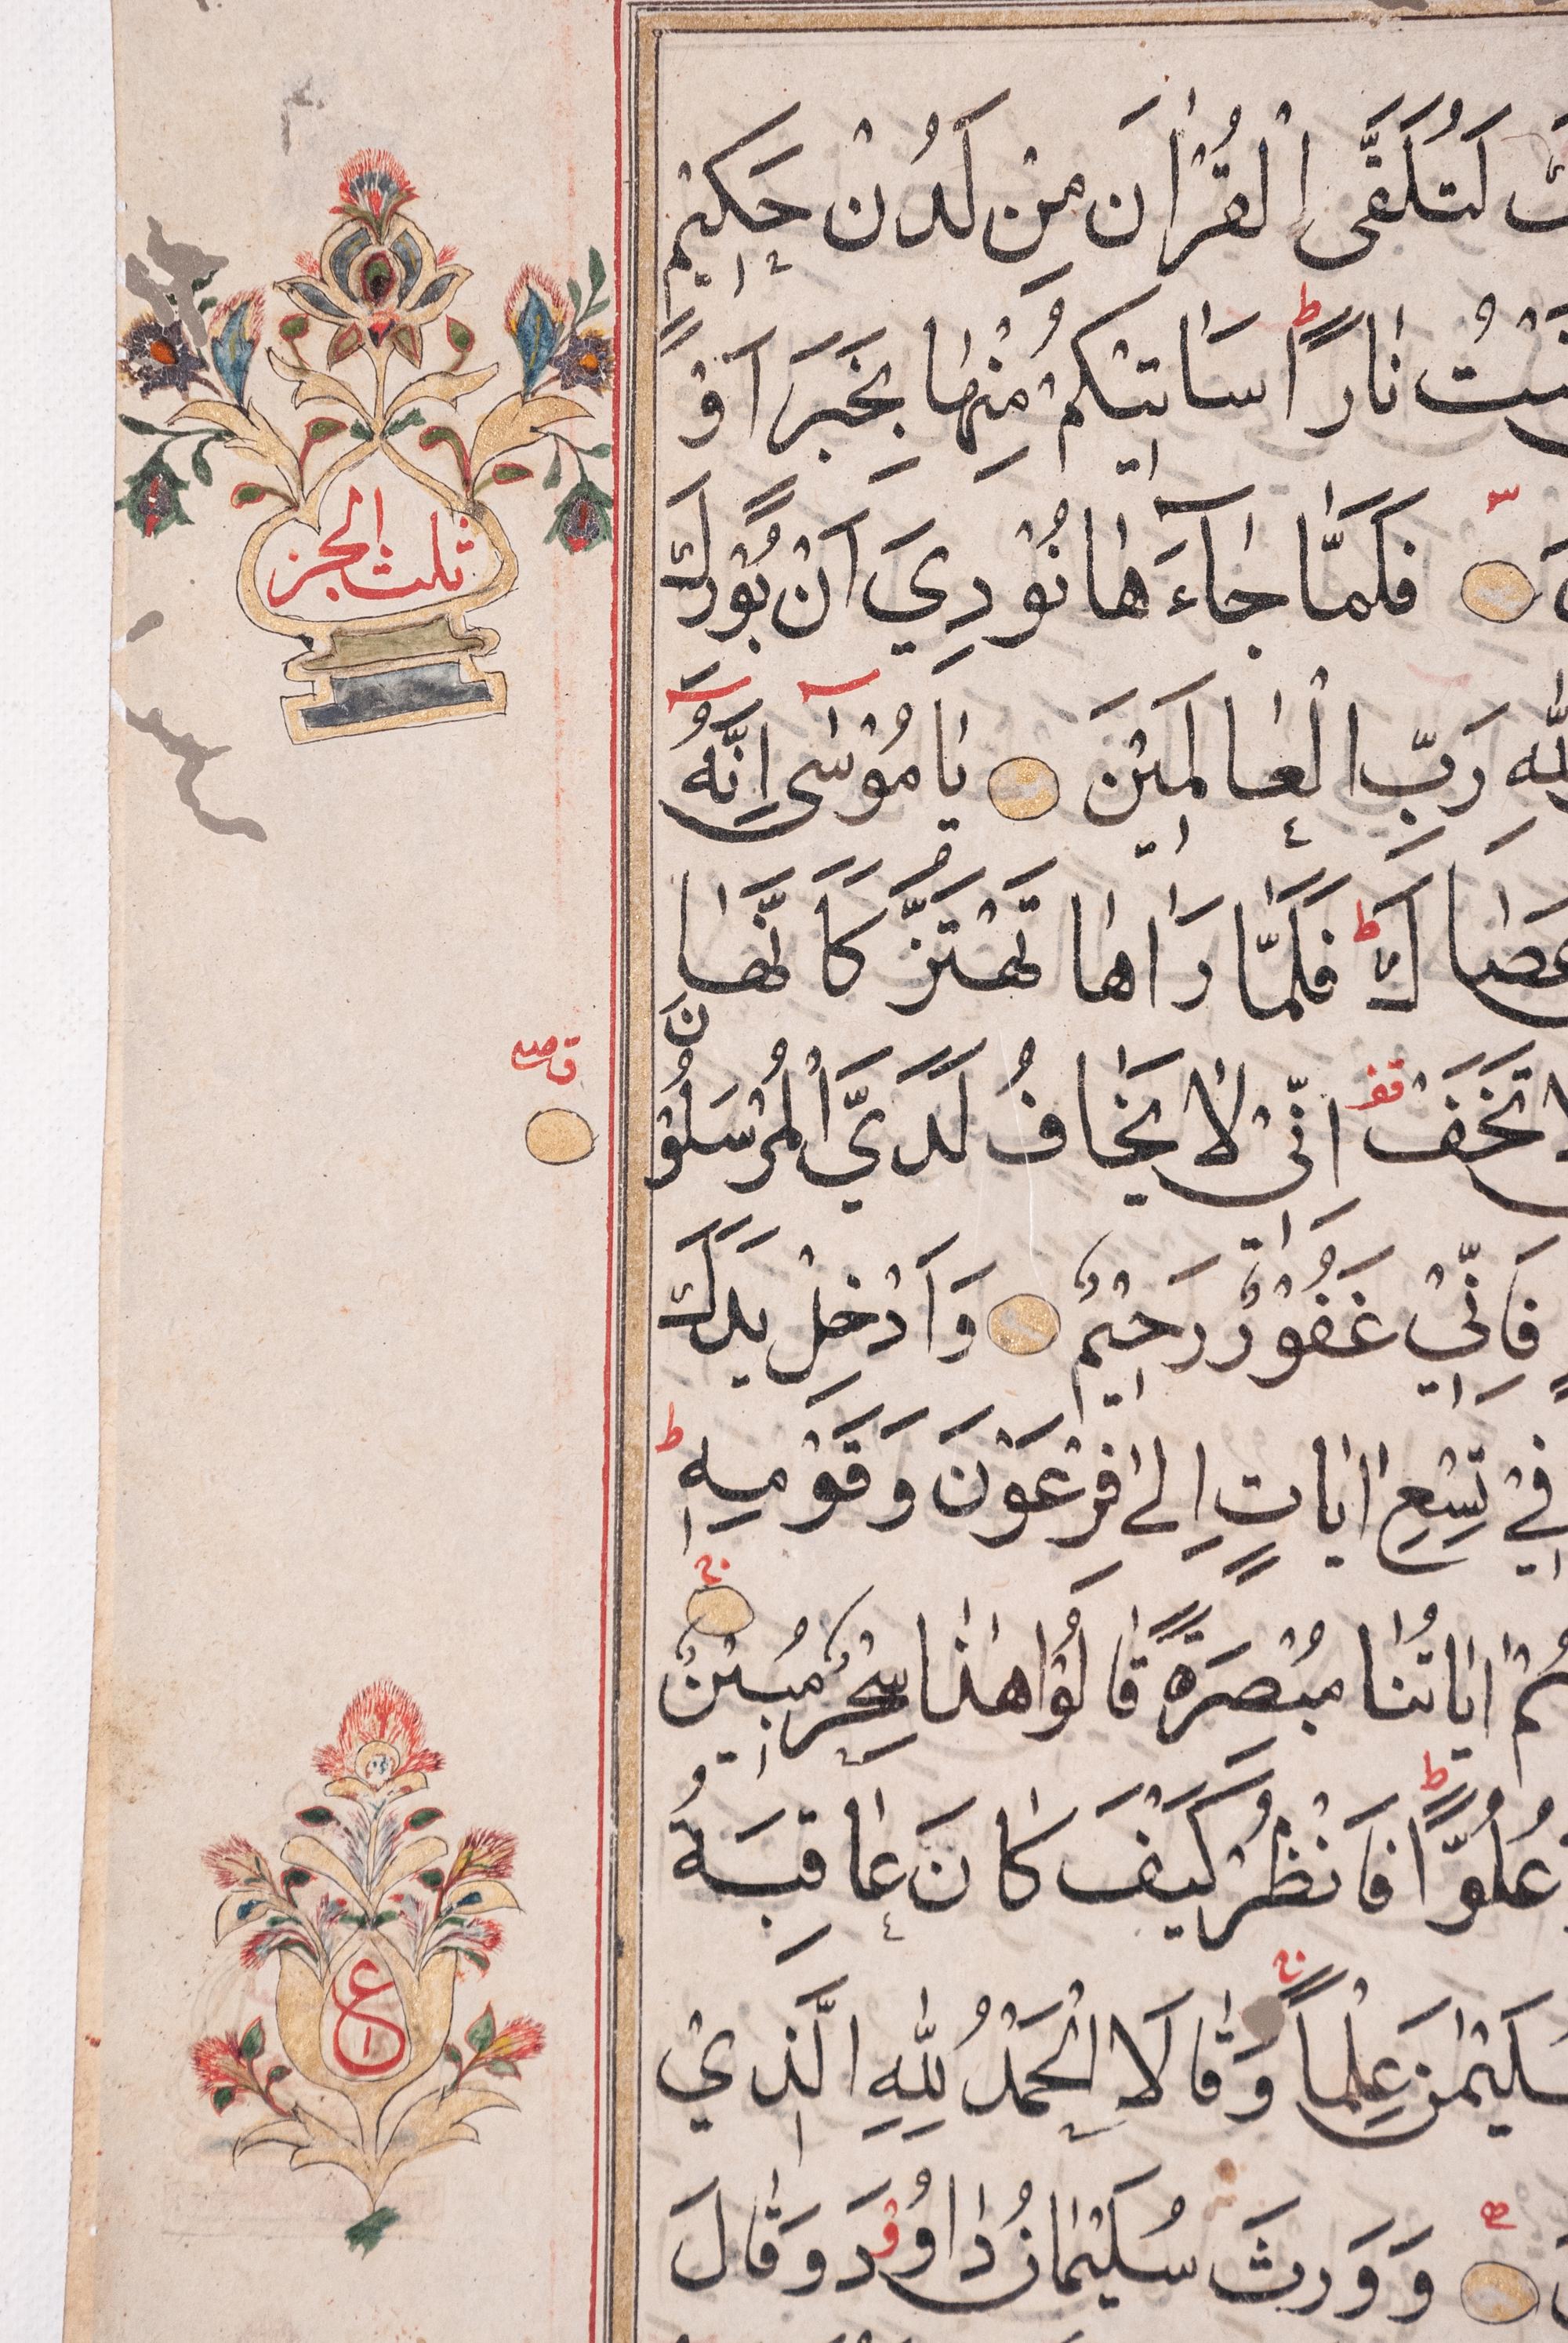 لَتُلَقَّى الْقُرْاٰنَ مِنْ لَدُنْ حَكِيْمٍ
نَارًا ط سَاٰتِيْكُمْ مِنْهَا بِخَبَرٍ اَوْ
فَلَمَّا جَآءَهَا نُوْدِيَ اَنْ بُوْرِكَ
رَبِّ الْعَالَمِيْنَ يَا مُوْسٰى اِنَّهُ
عَصَاكَ ط فَلَمَّا رَاٰهَا تَهْتَزُّ كَاَنَّهَا
تَخَفْ قف اِنِّيْ لَا يَخَافُ لَدَيَّ الْمُرْسَلُوْنَ
فَاِنِّيْ غَفُوْرٌ رَحِيْمٌ وَاَدْخِلْ يَدَكَ
فِيْ تِسْعِ اٰيَاتٍ اِلٰى فِرْعَوْنَ وَقَوْمِهٖ ط
اٰيَاتُنَا مُبْصِرَةً قَالُوْا هٰذَا سِحْرٌ مُبِيْنٌ ج
عُلُوًّا ط فَانْظُرْ كَيْفَ كَانَ عَاقِبَةُ
عِلْمًا ج وَقَالَا الْحَمْدُ لِلّٰهِ الَّذِيْ
وَوَرِثَ سُلَيْمَانُ دَاوُدَ وَقَالَ
ثلث الجز
ع